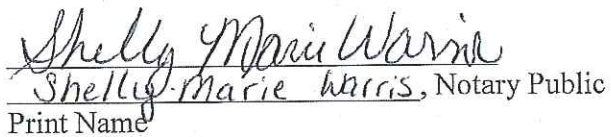 Shelly Marie Warris
Shelly Marie Warris, Notary Public
Print Name